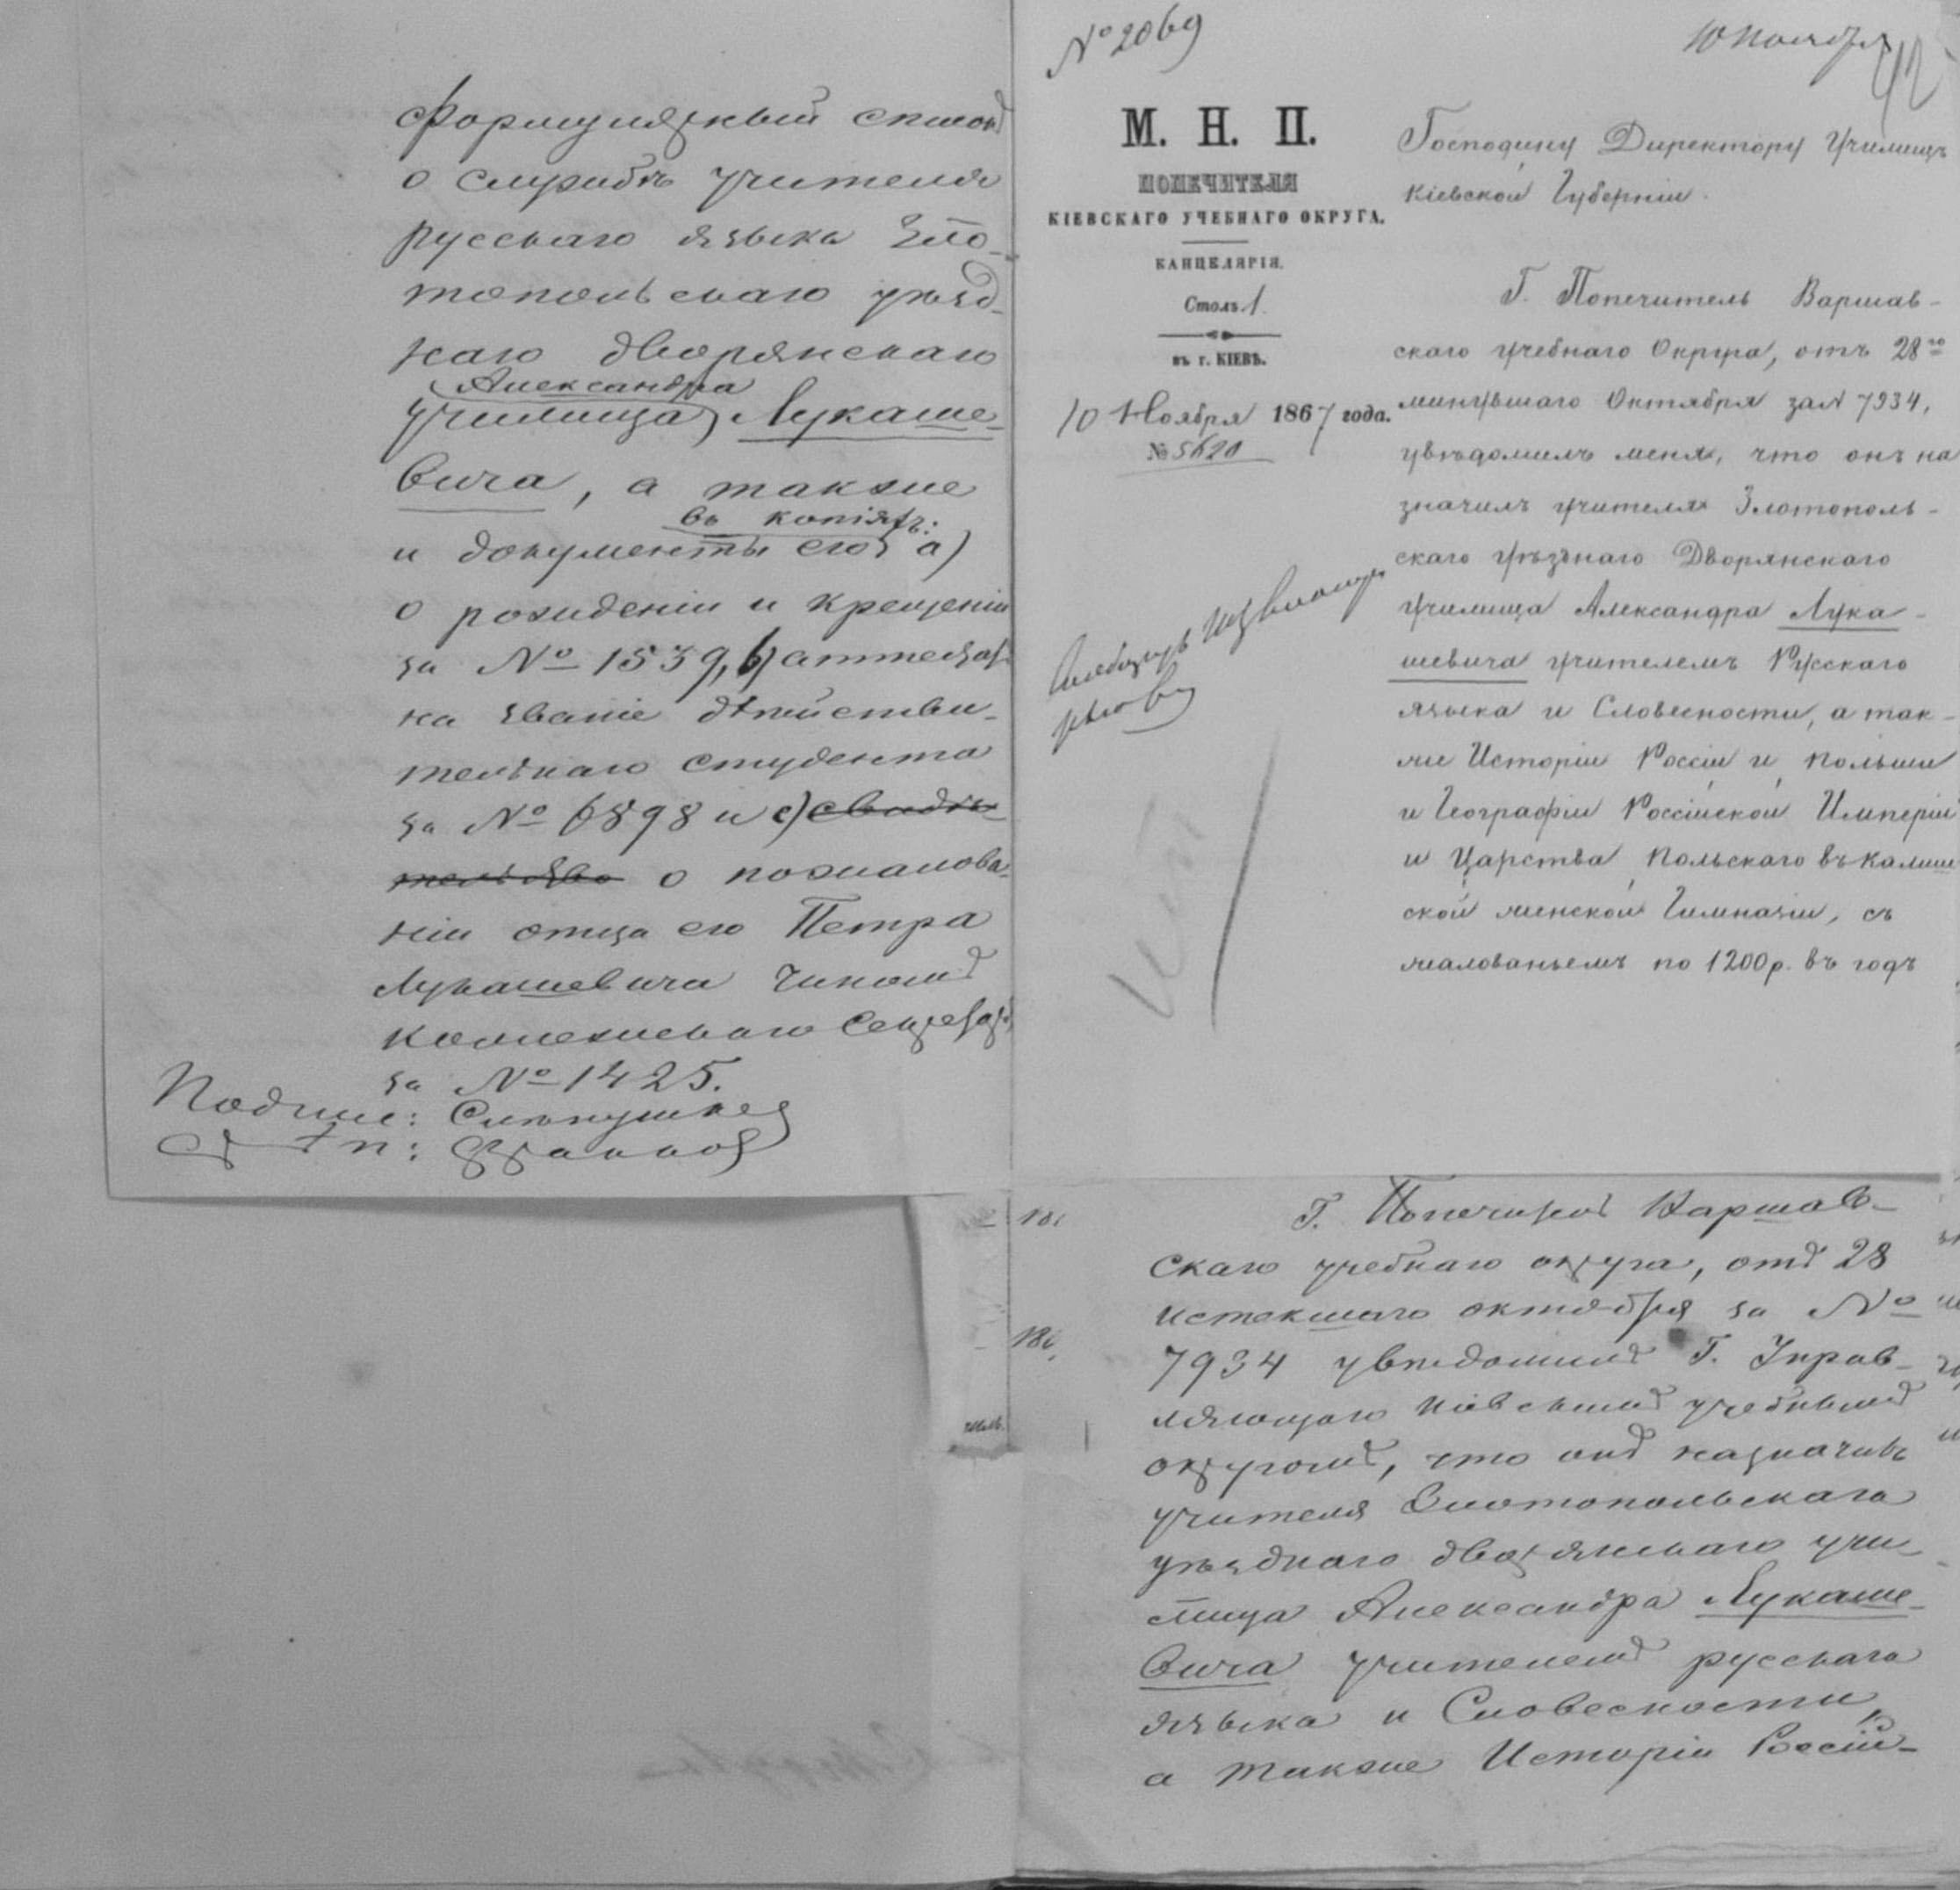 формулярный списокъ
о службѣ учителя
русскаго языка Зло-
топольскаго уѣзд-
наго дворянскаго
Александра
училища Лукаше-
вича, а также
въ копіяхъ:
и документы его а)
о рожденіи и крещеніи
за № 1539, b) аттестатъ
на званіе дѣйстви-
тельнаго студента
за № 6898 и c) свидѣ-
тельство о пожалова-
ніи отца его Петра
Лукашевича чиномъ
Коллежскаго Секретаря
за № 1425.
Подпис: Слѣпушкинъ
№ 2069
10 Ноября
42
М. Н. П.
ПОПЕЧИТЕЛЯ
КІЕВСКАГО УЧЕБНАГО ОКРУГА.
КАНЦЕЛЯРІЯ.
Столъ 1.
въ г. КІЕВѢ.
10 Ноября 1867 года.
№ 5620
Господину Директору Училищъ
Кіевской Губерніи.
Г. Попечитель Варшав-
скаго учебнаго Округа, отъ 28го
минувшаго Октября за № 7934,
увѣдомилъ меня, что онъ на
значилъ учителя Злотополь-
скаго уѣзднаго Дворянскаго
училища Александра Лука-
шевича учителемъ Русскаго
языка и Словесности, а так-
же Исторіи Россіи и Польши
и Географіи Россійской Имперіи
и Царства Польскаго въ Калиш
ской женской Гимназіи, съ
жалованьемъ по 1200 р. въ годъ
Г. Попечитель Варшав-
скаго учебнаго округа, отъ 28
истекшаго октября за №
7934 увѣдомилъ Г. Управ-
ляющаго Кіевскимъ учебнымъ
округомъ, что онъ назначилъ
учителя Злотопольскаго
уѣзднаго дворянскаго учи-
лища Александра Лукаше-
вича учителемъ русскаго
языка и Словесности,
а также Исторіи Россіи-